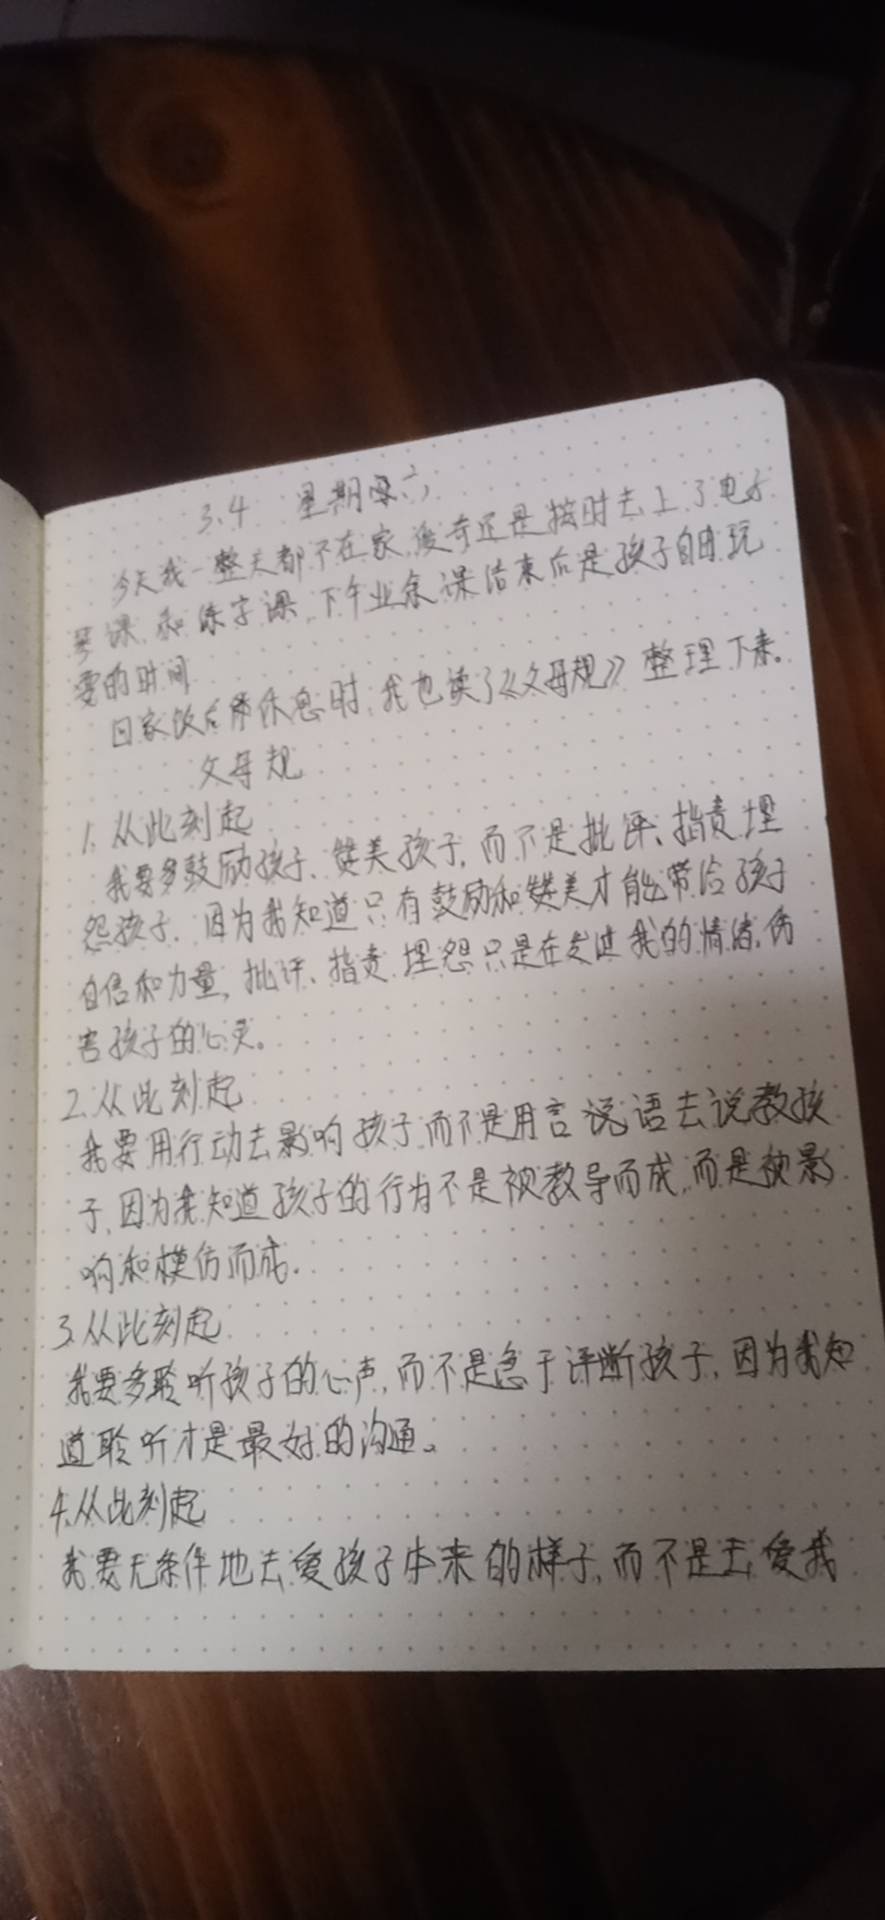 3.4 星期六
今天我一整天都不在家,俊奇还是按时去上了电子
琴课和练字课,下午业余课结束后是孩子自由玩
耍的时间
回家饭后休息时,我也读了《父母规》整理下来。
父母规
1.从此刻起
我要多鼓励孩子、赞美孩子,而不是批评、指责、埋
怨孩子,因为我知道只有鼓励和赞美才能带给孩子
自信和力量,批评、指责、埋怨只是在发泄我的情绪,伤
害孩子的心灵。
2.从此刻起
我要用行动去影响孩子而不是用言说语去说教孩
子,因为我知道孩子的行为不是被教导而成,而是被影
响和模仿而成.
3.从此刻起
我要多聆听孩子的心声,而不是急于评断孩子,因为我知
道聆听才是最好的沟通。
4.从此刻起
我要无条件地去爱孩子本来的样子,而不是去爱我